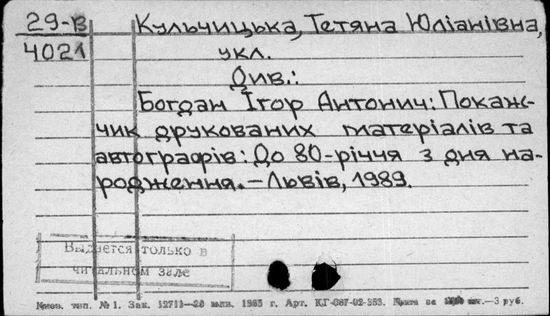 29-В
4021
Кульчицька, Тетяна Юліанівна,
укл.
Див.:
Богдан Ігор Антонич: Покаж-
чик друкованих матеріалів та
автографів: До 80-річчя з дня на-
родження. – Львів, 1989.
Выдается только в
читальном зале
тип. № 1. Зак. 1985 г. Арт. КГ-087-02-353. за —3 руб.